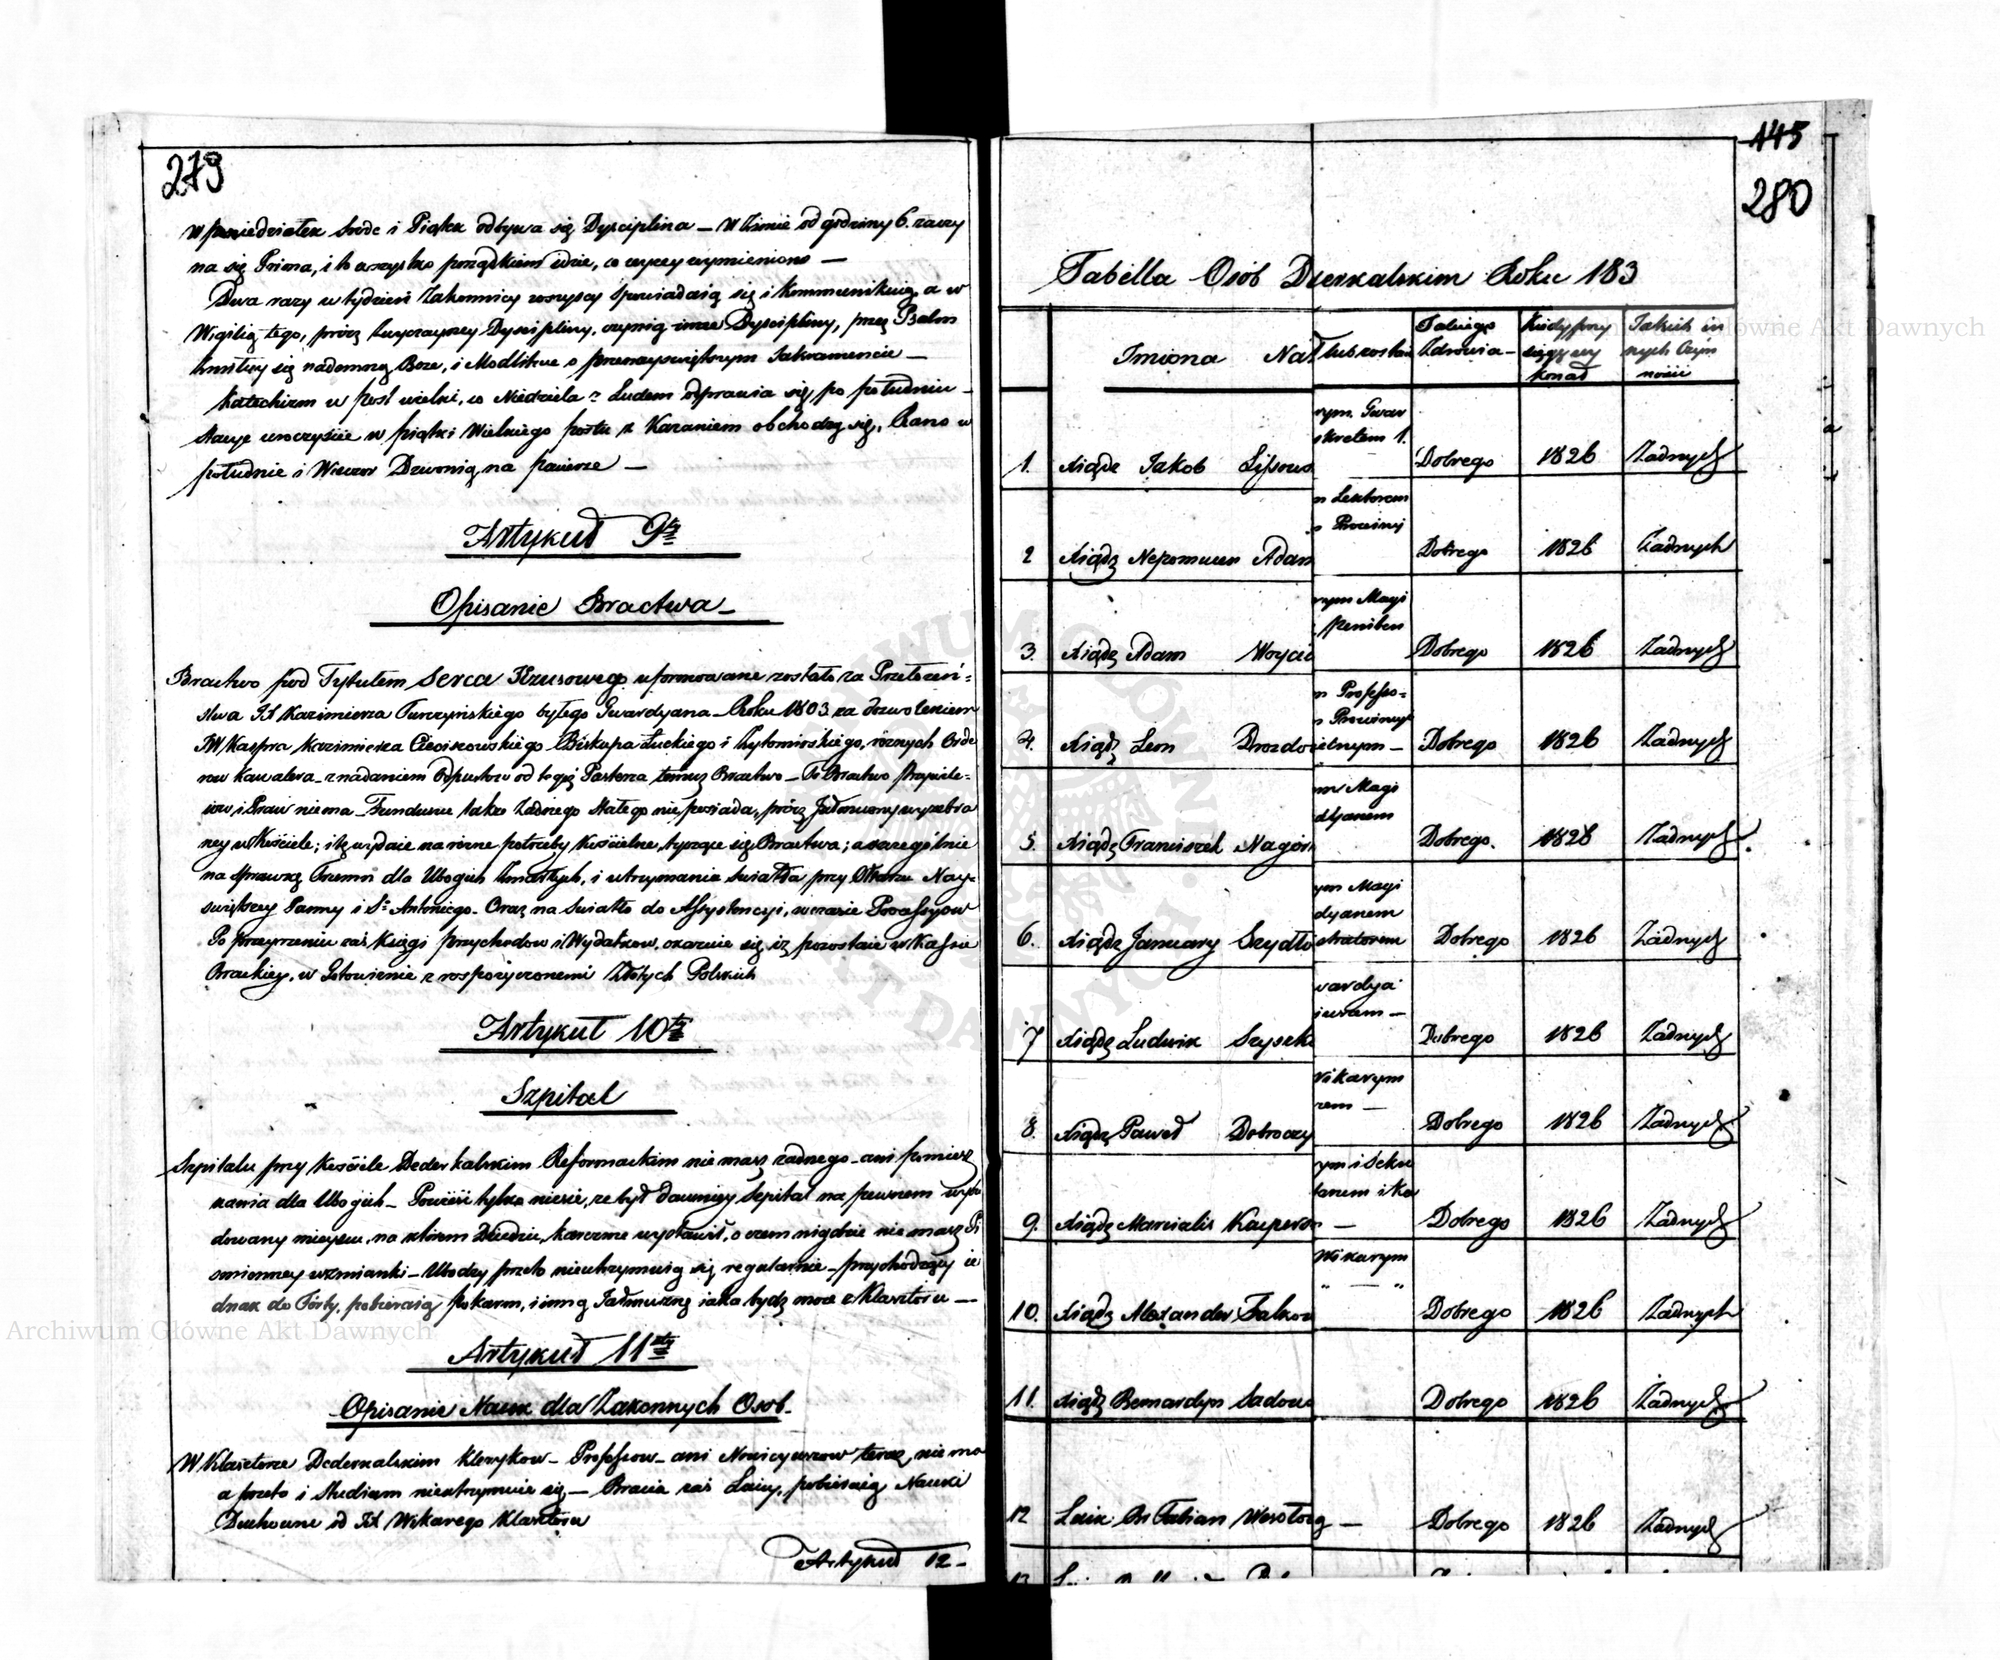 279
w poniedziałek Srode i Piątek odbywa się Dyscyplina – W Zimie od godziny 6. zaczy
na się Prima, i to wszystko porządkiem idzie, co wyzey wymieniono –
Dwa razy w tydzień Zakonnicy wszyscy Spowiadaią się i Kommunikuią, a w
Wigilią tego, prócz zwyczayney Dyscypliny, czynią insze Dyscipliny, przez Psalm
Zmiłuy się nademną Boze, i Modlitwe o przenayswiętszym Sakramencie –
Katechizm w post wielki, co Niedziela z Ludem odprawia się, po południu –
Stacye uroczyście w piątki Wielkiego postu z Kazaniem obchodzą się, Rano w
południe i Wieczor Dzwonią na pacierze –
Artykuł 9ty
Opisanie Bractwa –
Bractwo pod Tytułem Serca Jezusowego uformowane zostało za Przełożeń-
stwa JX Kazimierza Turczyńskiego byłego Gwardyana – Roku 1803 za dozwoleniem
JW Kaspra Kazimierza Cieciszowskiego Biskupa Łuckiego i Żytomirskiego, róznych Orde
row Kawalera – z nadaniem Odpustow od tegoż Pasterza temuz Bractwu – To Bractwo Przywile-
iow i Praw niema – Funduszu takze Żadnego Stałego nie posiada, prócz Jałmuzny uzebra
ney w Kościele; i tę wydaie na rózne potrzeby Kościelne, tyczące się Bractwa; a szczególnie
na sprawę Trumn dla Ubogich Zmarłych, i utrzymania Swiatła przy Ołtarzu Nay-
świętszey Panny i St Antoniego. Oraz na Swiatło do Assystencyi, w czasie Processyow
Po przeyrzeniu zaś Księgi przychodow i Wydatkow, okazuie się iz pozostaie w Kassie
Brackiey, w Gotowiznie z rospożyczonemi Złotych Polskich
Artykuł 10ty
Szpital
Szpitalu przy Kościele Dederkalskim Reformackim nie masz zadnego – ani pomiesz
kania dla Ubogich – Powieść tylko niesie, ze był dawniey Szpital na pewnem wybu
dowany mieyscu, na którem Dziedzic, karczme wystawił, o czem nigdzie nie masz Pi
smienney wzmianki – Ubodzy przeto nieutrzymuią się regularnie – przychodzący ie
dnak do Fórty, pobieraią pokarm, i inną Jałmuznę iaka bydz moze z Klasztoru –
Artykuł 11sty
Opisanie Nauk dla Zakonnych Osob –
W Klasztorze Dederkalskim Klerykow – Professow – ani Nowicyuszow teraz nie ma
a przeto i Studium nieutrzymuie się – Bracia zaś Laicy, pobieraią Nauki
Duchowne od JX Wikarego Klasztoru
Artykuł 12 –
145
280
Tabella Osób Dzerkalskim Roku 183
Imiona Na
lub zostaie
Iakiego Zdrowia –
Kiedy przysięgę wykonał
Iakich innych Czynności
rym. Gwar
skretem 1.
1. Xiądz Jakob Lissows Dobrego 1826 Żadnych
m Lektorem
o Prowincj
2 Xiądz Nepomucen Adam Dobrego 1826 Żadnych
rym Magi
i peniten
3. Xiądz Adam Woycic Dobrego 1826 Żadnych
m Professo-
o Prowincyi
4. Xiądz Leon Drozdo
ielnym – Dobrego 1826 Żadnych
ym Magi
dyanem
5. Xiądz Franciszek Nagórs Dobrego. 1826 Żadnych
ym Magi
dyanem
6. Xiądz January Szydło
istratorem Dobrego 1826 Żadnych
wardya
iuszem –
7 Xiądz Ludwik Szyszk Dobrego 1826 Żadnych
Wikarym
rem –
8. Xiądz Paweł Dobroczy Dobrego 1826 Żadnych
rym i Sekre
tarzem i Ka
9. Xiądz Marcialis Kacpero – Dobrego 1826 Żadnych
Wikarym
" — "
10. Xiądz Alexander Falkow Dobrego 1826 Żadnych
11. Xiądz Bernardyn Sadows Dobrego 1826 Żadnych
12 Laik Br Fabian – Dobrego 1826 Żadnych
13
Archiwum Główne Akt Dawnych